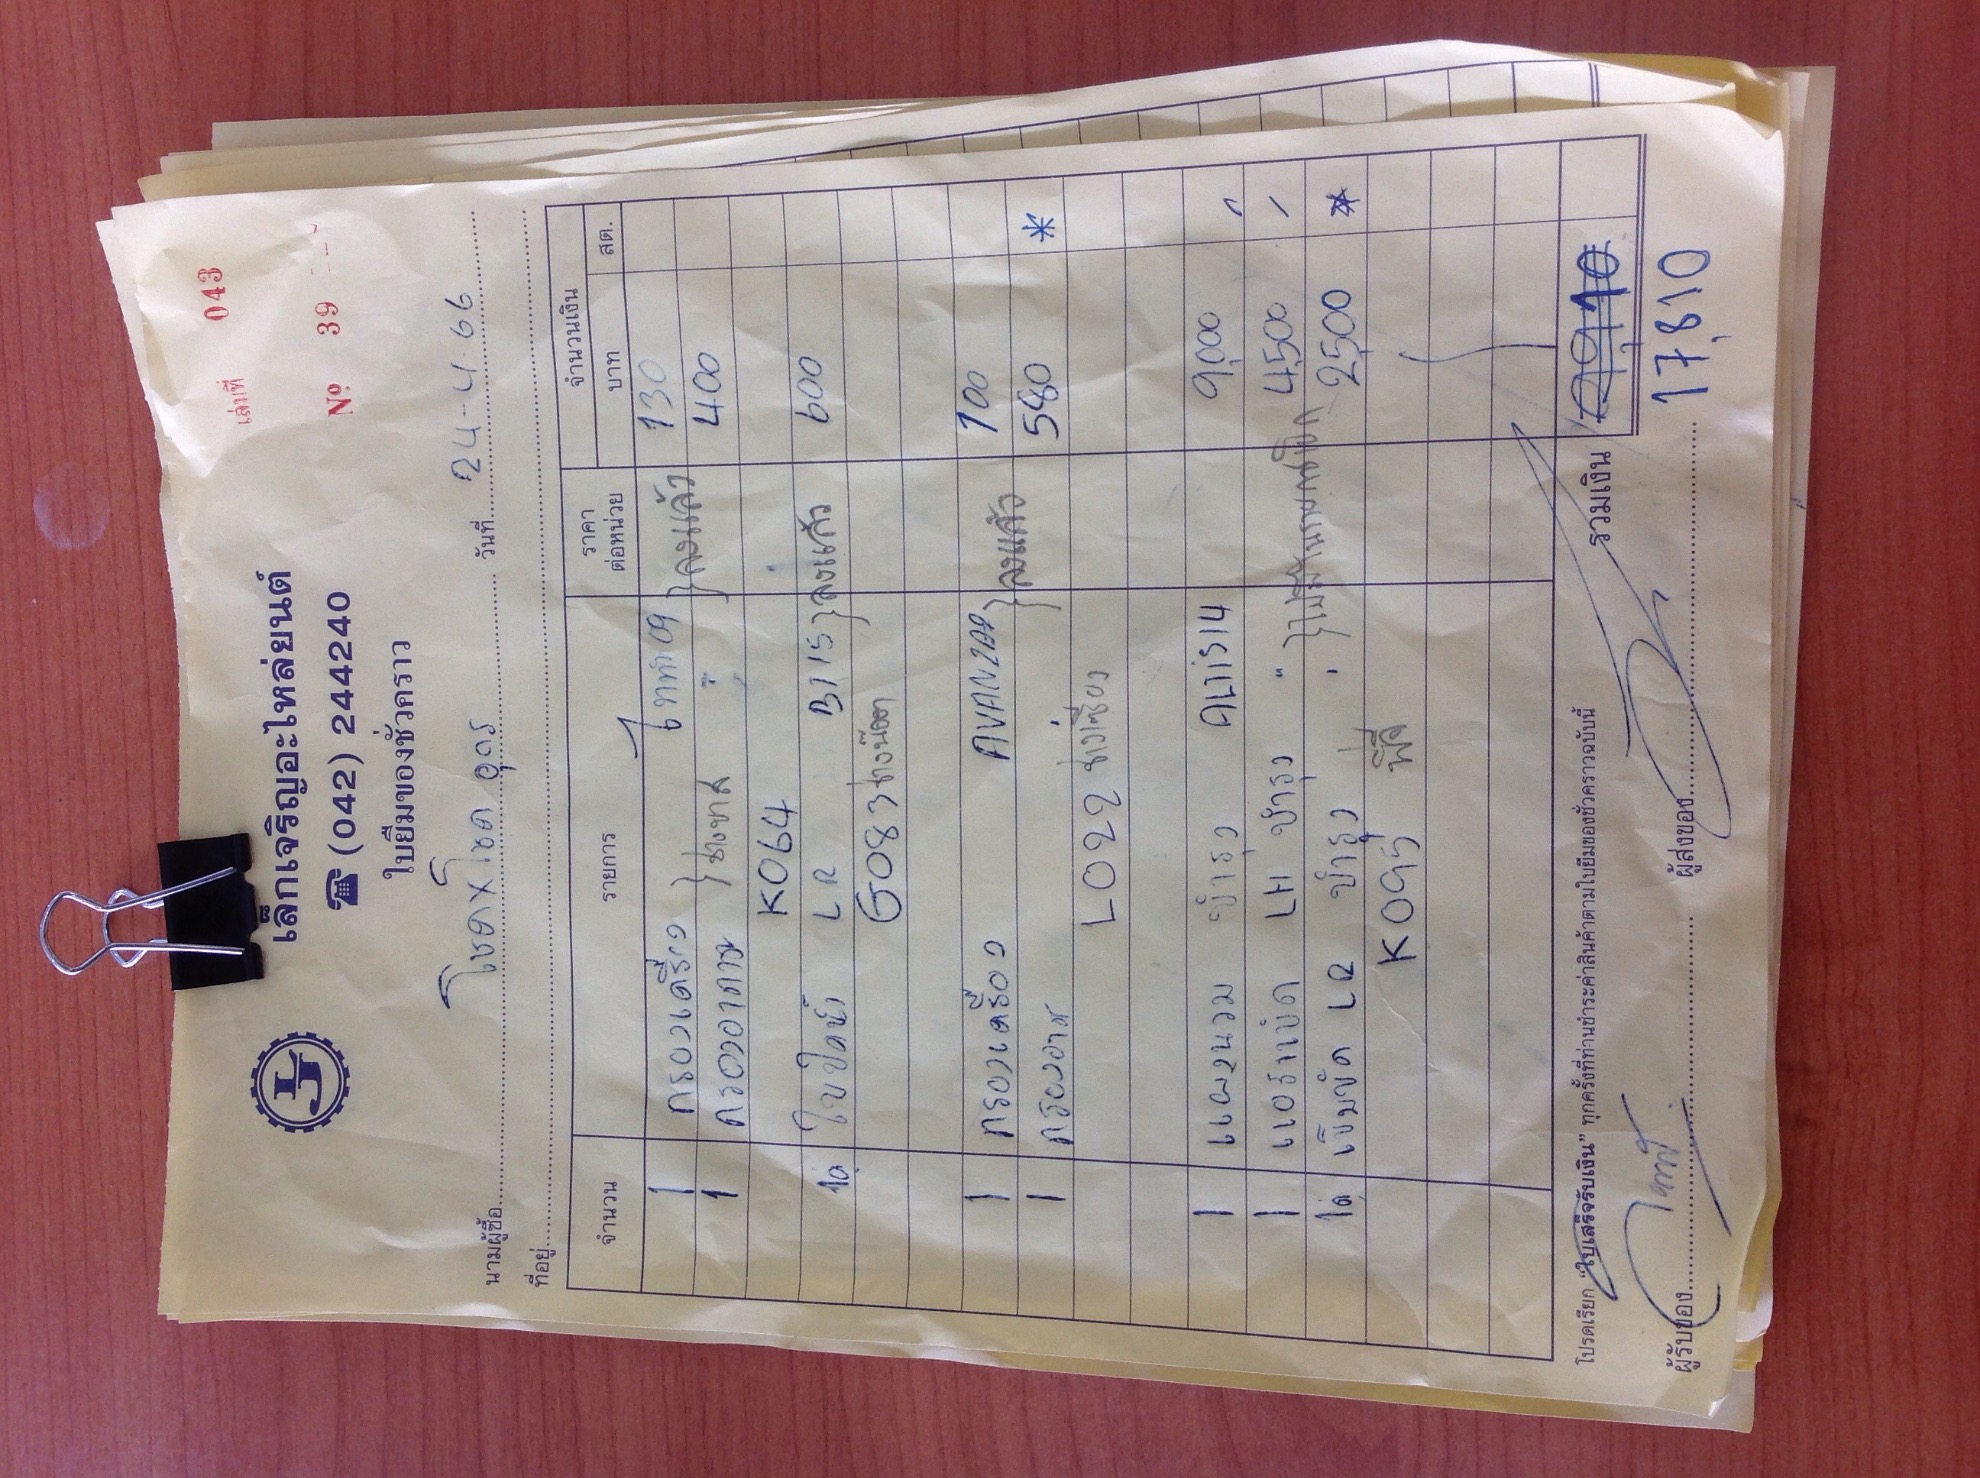 เล่มที่ 043
Nº 39
เล็กเจริญอะไหล่ยนต์
☎ (042) 244240
ใบยืมของชั่วคราว
นามผู้ซื้อ โชคXโชค อุดร วันที่ 24-4-66
ที่อยู่
จำนวน รายการ ราคาต่อหน่วย จำนวนเงิน
บาท สต.
1 กรองเครื่อง 09 130
1 กรองอากาศ " } ลงแล้ว 400
K064
LR B115 } ลงแล้ว 600
G083
1 กรองเครื่อง AVANZA 100
1 กรองอากาศ } ลงแล้ว 580 *
L022
1 แผงนวม บำรุง ALTIS14 9,000
1 LH บำรุง " 4,500
LR บำรุง 2,500 *
K095
โปรดเรียก "ใบเสร็จรับเงิน" ทุกครั้งที่ท่านชำระค่าสินค้าตามใบยืมของชั่วคราวฉบับนี้
รวมเงิน
17,810
ผู้รับของ ผู้ส่งของ